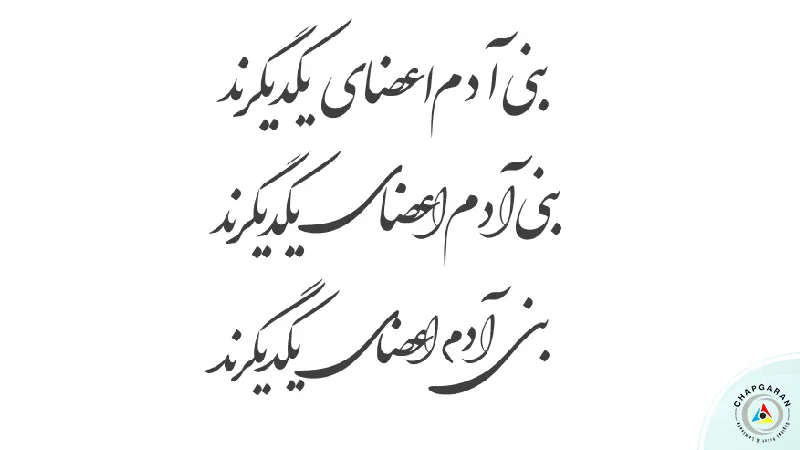 بنی آدم اعضای یکدیگرند
بنی آدم اعضای یکدیگرند
بنی آدم اعضای یکدیگرند
CHAPGARAN